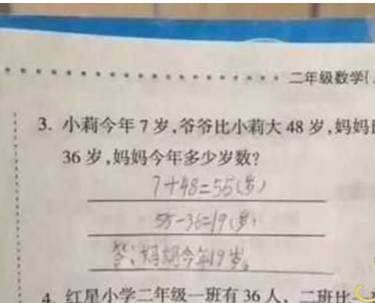 二年级数学(
3. 小莉今年7岁,爷爷比小莉大48岁,妈妈
36岁,妈妈今年多少岁数?
7+48=55(岁)
55-36=19(岁)
答:妈妈今年19岁。
4. 红星小学二年级一班有36人,二班比